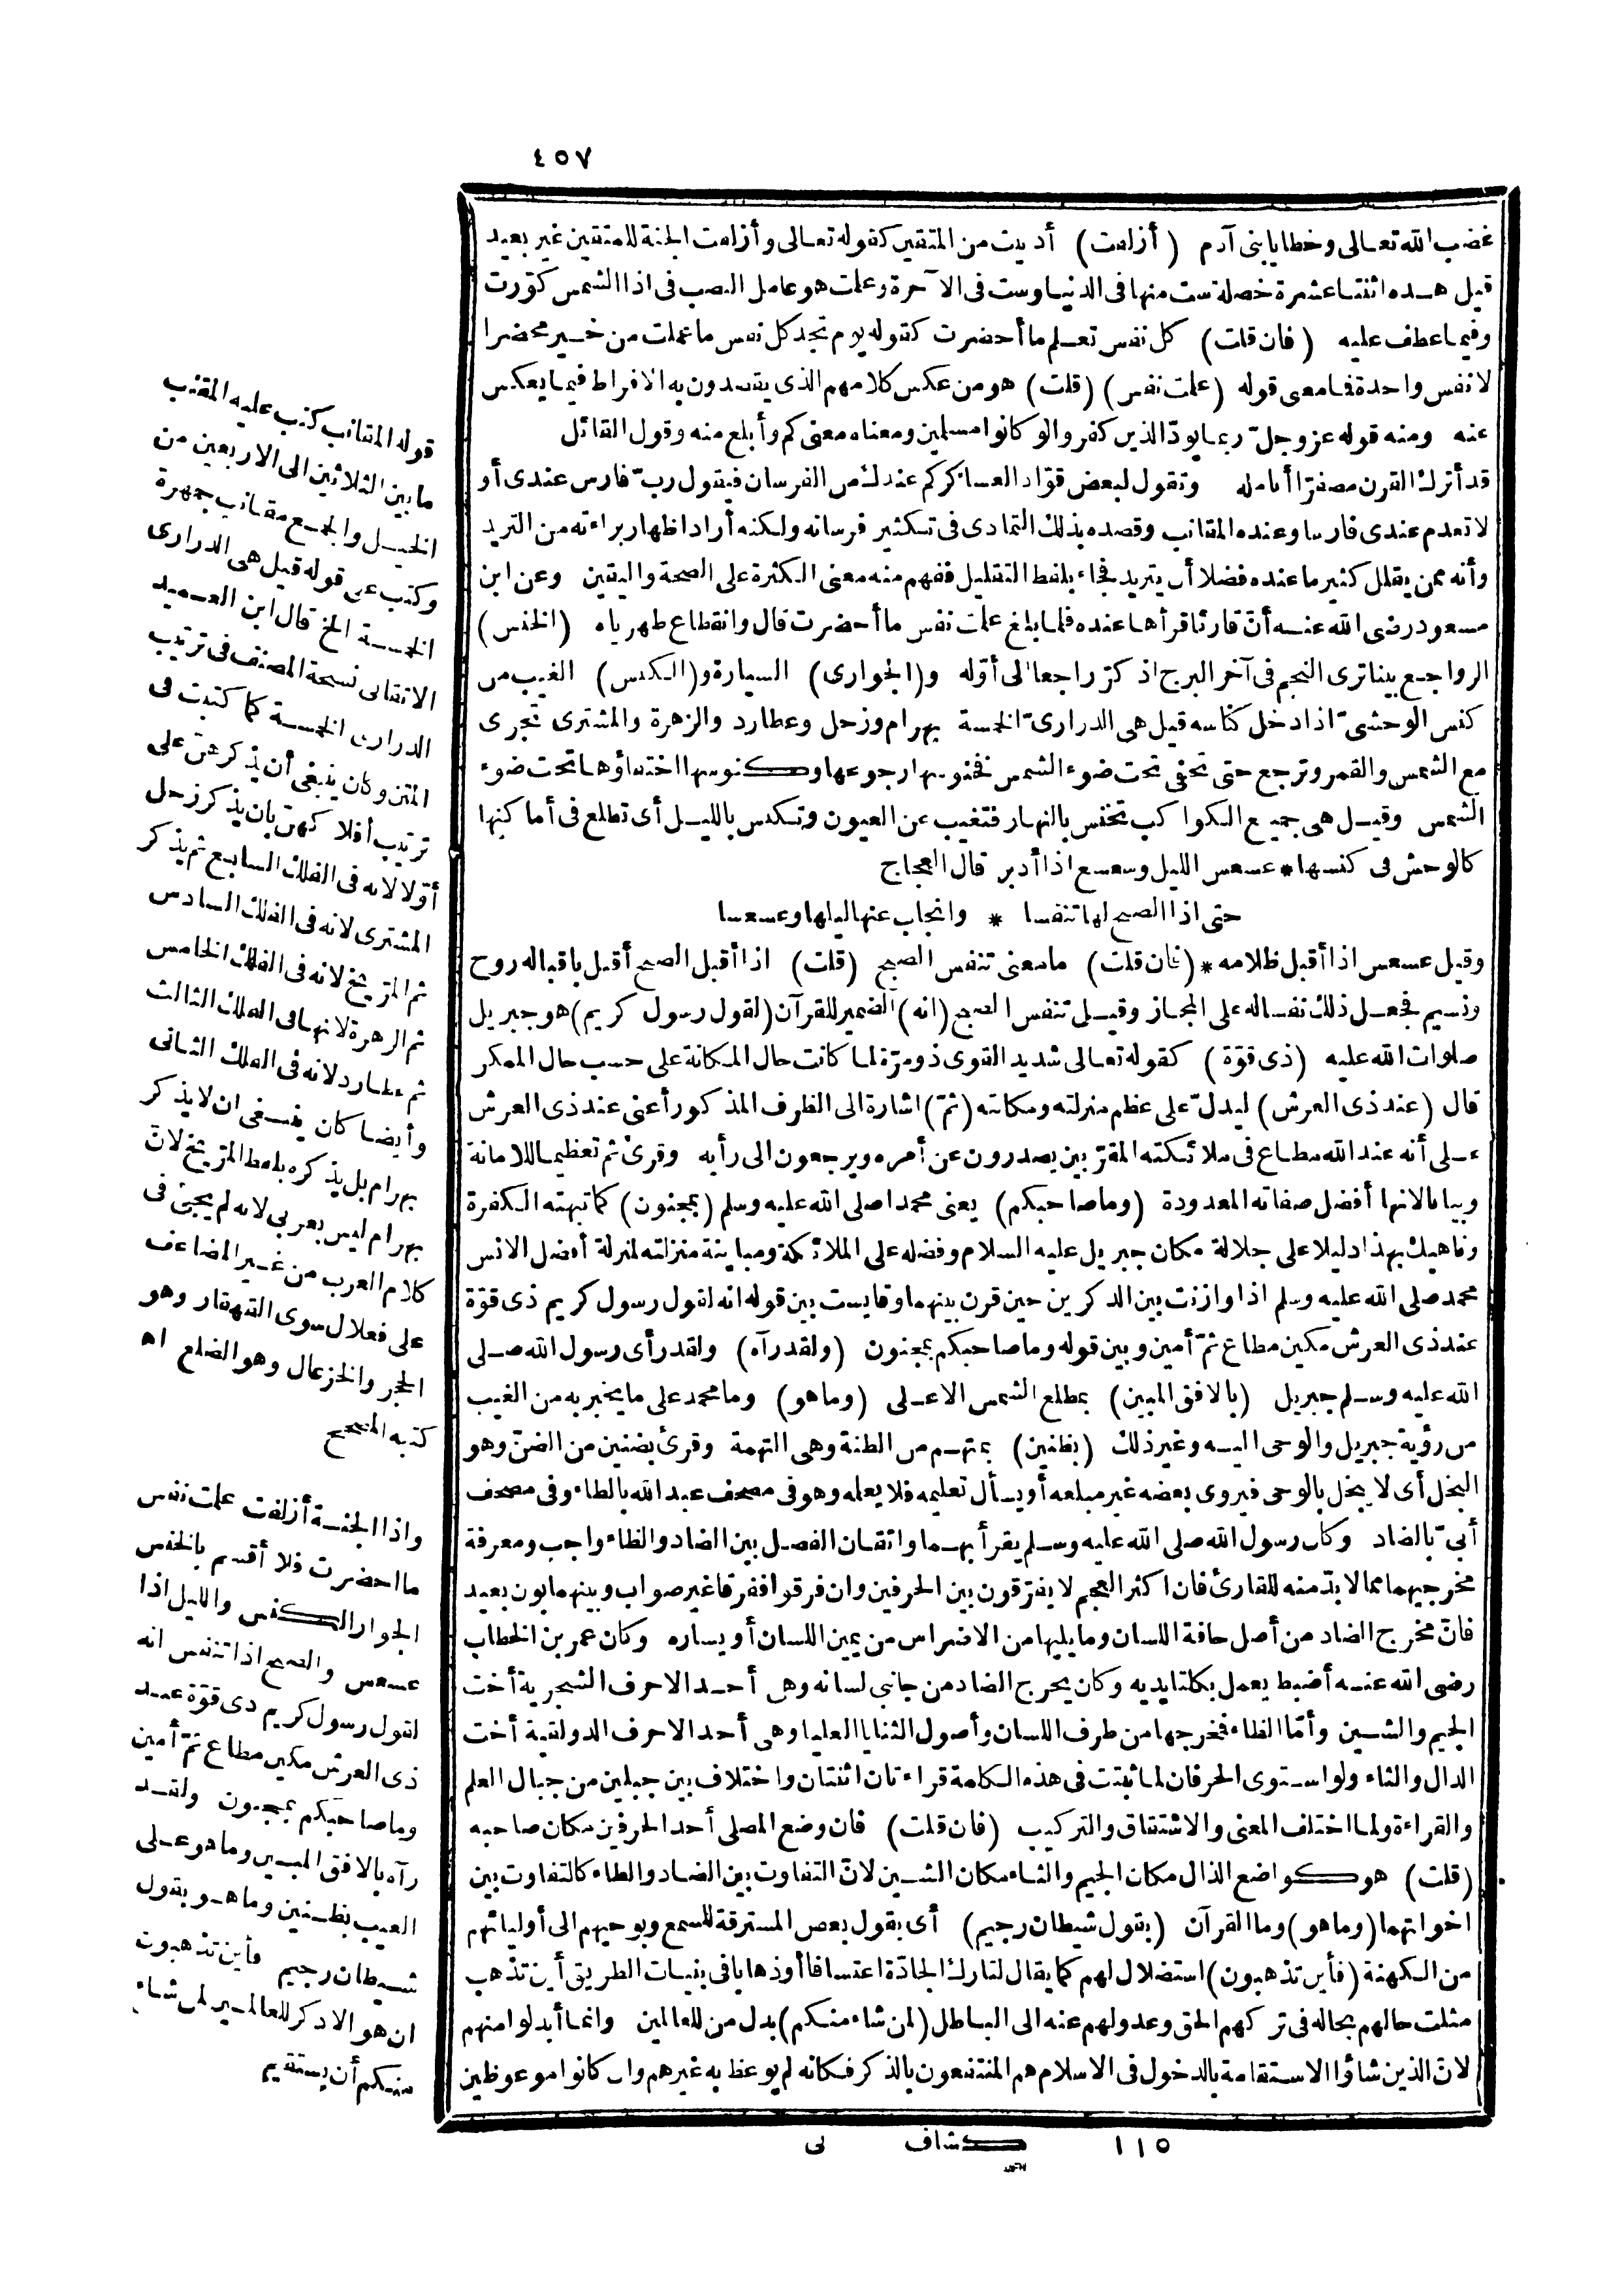 ٤٥٧
غضب الله تعالى وخطايا بنى آدم (أزلفت) أدنيت من المتقين كقوله تعالى وأزلفت الجنة للمتقين غير بعيد
قيل هذه اثنتا عشرة خصلة ست منها فى الدنيا وست فى الآخرة وعلمت هو عامل النصب فى اذا الشمس كوّرت
وفيما عطف عليه (فان قلت) كل نفس تعلم ما أحضرت كقوله يوم تجد كل نفس ما عملت من خير محضرا
لا نفس واحدة فما معنى قوله (علمت نفس) (قلت) هو من عكس كلامهم الذى يقصدون به الافراط فيما يعكس
عنه ومنه قوله عز وجلّ ربما يودّ الذين كفروا لو كانوا مسلمين ومعناه معنى كم وأبلغ منه وقول القائل
قد أترك القرن مصفرّا أنامله وتقول لبعض قوّاد العساكركم عندك من الفرسان فيقول ربّ فارس عندى أو
لا تعدم عندى فارسا وعنده المقانب وقصده بذلك التمادى فى تكثير فرسانه ولكنه أراد اظهار براءته من التزيد
وأنه ممن يقلل كثير ما عنده فضلا أن يتزيد فجاء بلفظ التقليل ففهم منه معنى الكثرة على الصحة واليقين وعن ابن
مسعود رضى الله عنه أنّ قارئا قرأها عنده فلما بلغ علمت نفس ما أحضرت قال وانقطاع ظهرياه (الخنس)
الرواجع بينا ترى النجم فى آخر البرج اذ كرّ راجعا الى أوّله و(الجوارى) السيارة و(الكنس) الغيب من
كنس الوحشىّ اذا دخل كناسه قيل هى الدرارىّ الخمسة بهرام وزحل وعطارد والزهرة والمشترى تجرى
مع الشمس والقمر وترجع حتى تخفى تحت ضوء الشمس فخنوسها رجوعها وكنوسها اختفاؤها تحت ضوء
الشمس وقيل هى جميع الكواكب تخنس بالنهار فتغيب عن العيون وتكنس بالليل أى تطلع فى أماكنها
كالوحش فى كنسها * عسعس الليل وسعسع اذا أدبر قال العجاج
حتى اذا الصبح لها تنفسا * وانجاب عنها ليلها وعسعسا
وقيل عسعس اذا أقبل ظلامه * (فان قلت) ما معنى تنفس الصبح (قلت) اذا أقبل الصبح أقبل باقباله روح
ونسيم فجعل ذلك نفسا له على المجاز وقيل تنفس الصبح (انه) الضمير للقرآن (لقول رسول كريم) هو جبريل
صلوات الله عليه (ذى قوّة) كقوله تعالى شديد القوى ذو مرّة لما كانت حال المكانة على حسب حال الممكن
قال (عند ذى العرش) ليدلّ على عظم منزلته ومكانته (ثمّ) اشارة الى الظرف المذكور أعنى عند ذى العرش
على أنه عند الله مطاع فى ملائكته المقرّبين يصدرون عن أمره ويرجعون الى رأيه وقرئ ثم تعظيما للامانة
وبيانا لانها أفضل صفاته المعدودة (وما صاحبكم) يعنى محمدا صلى الله عليه وسلم (بمجنون) كما تبهته الكفرة
وناهيك بهذا دليلا على جلالة مكان جبريل عليه السلام وفضله على الملائكة ومباينة منزلته لمنزلة أفضل الانس
محمد صلى الله عليه وسلم اذا وازنت بين الذكرين حين قرن بينهما وقايست بين قوله انه لقول رسول كريم ذى قوّة
عند ذى العرش مكين مطاع ثمّ أمين وبين قوله وما صاحبكم بمجنون (ولقد رآه) ولقد رأى رسول الله صلى
الله عليه وسلم جبريل (بالافق المبين) بمطلع الشمس الاعلى (وما هو) وما محمد على ما يخبر به من الغيب
من رؤية جبريل والوحى اليه وغير ذلك (بظنين) بمتهم من الظنة وهى التهمة وقرئ بضنين من الضنّ وهو
البخل أى لا يبخل بالوحى فيزوى بعضه غير مبلغه أو يسأل تعليمه فلا يعلمه وهو فى مصحف عبد الله بالظاء وفى مصحف
أبىّ بالضاد وكان رسول الله صلى الله عليه وسلم يقرأ بهما واتقان الفصل بين الضاد والظاء واجب ومعرفة
مخرجيهما مما لا بدّ منه للقارئ فان أكثر العجم لا يفرّقون بين الحرفين وان فرقوا ففرقا غير صواب وبينهما بون بعيد
فانّ مخرج الضاد من أصل حافة اللسان وما يليها من الاضراس من يمين اللسان أو يساره وكان عمر بن الخطاب
رضى الله عنه أضبط يعمل بكلتا يديه وكان يخرج الضاد من جانبى لسانه وهى أحد الاحرف الشجرية أخت
الجيم والشين وأمّا الظاء فمخرجها من طرف اللسان وأصول الثنايا العليا وهى أحد الاحرف الذولقية أخت
الذال والثاء ولو استوى الحرفان لما ثبتت فى هذه الكلمة قراءتان اثنتان واختلاف بين جبلين من جبال العلم
والقراءة ولما اختلف المعنى والاشتقاق والتركيب (فان قلت) فان وضع المصلى أحد الحرفين مكان صاحبه
(قلت) هو كواضع الذال مكان الجيم والثاء مكان الشين لانّ التفاوت بين الضاد والظاء كالتفاوت بين
اخواتهما (وما هو) وما القرآن (بقول شيطان رجيم) أى بقول بعض المسترقة للسمع وبوحيهم الى أوليائهم
من الكهنة (فأين تذهبون) استضلال لهم كما يقال لتارك الجادّة اعتسافا أو ذهابا فى بنيات الطريق أين تذهب
مثلت حالهم بحاله فى تركهم الحق وعدولهم عنه الى الباطل (لمن شاء منكم) بدل من للعالمين وانما أبدلوا منهم
لانّ الذين شاؤا الاستقامة بالدخول فى الاسلام هم المنتفعون بالذكر فكانه لم يوعظ به غيرهم وان كانوا موعوظين
١١٥ كشاف نى
قوله المقانب كتب عليه المقنب
ما بين الثلاثين الى الاربعين من
الخيل والجمع مقانب جمهرة
وكتب على قوله قيل هى الدرارى
الخمسة الخ قال ابن العميد
الاتقانى نسخة المصنف فى ترتيب
الدرارى الخمسة كما كتبت فى
المتن وكان ينبغى أن يذكرهنّ على
ترتيب أفلاكهنّ بان يذكر زحل
أوّلا لانه فى الفلك السابع ثم يذكر
المشترى لانه فى الفلك السادس
ثم المرّيخ لانه فى الفلك الخامس
ثم الزهرة لانها فى الفلك الثالث
ثم عطارد لانه فى الفلك الثانى
وأيضا كان ينبغى ان لا يذكر
بهرام بل يذكره بلفظ المرّيخ لانّ
بهرام ليس بعربى لانه لم يجئ فى
كلام العرب من غير المضاعف
على فعلال سوى القهقار وهو
الحجر والخزعال وهو الضلع اه
كتبه المصحح
واذا الجنة أزلفت علمت نفس
ما احضرت فلا أقسم بالخنس
الجوار الكنس والليل اذا
عسعس والصبح اذا تنفس انه
لقول رسول كريم ذى قوّة عند
ذى العرش مكين مطاع ثمّ أمين
وما صاحبكم بمجنون ولقد
رآه بالافق المبين وما هو على
الغيب بظنين وما هو بقول
شيطان رجيم فأين تذهبون
ان هو الا ذكر للعالمين لمن شاء
منكم أن يستقيم